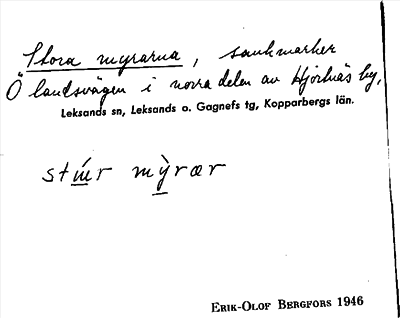 Stora myrarna, sankmarker
Ö landsvägen i norra delen av Hjortnäs by,
Leksands sn, Leksands o. Gagnefs tg, Kopparbergs län.
stúr mỳrær
ERIK-OLOF BERGFORS 1946